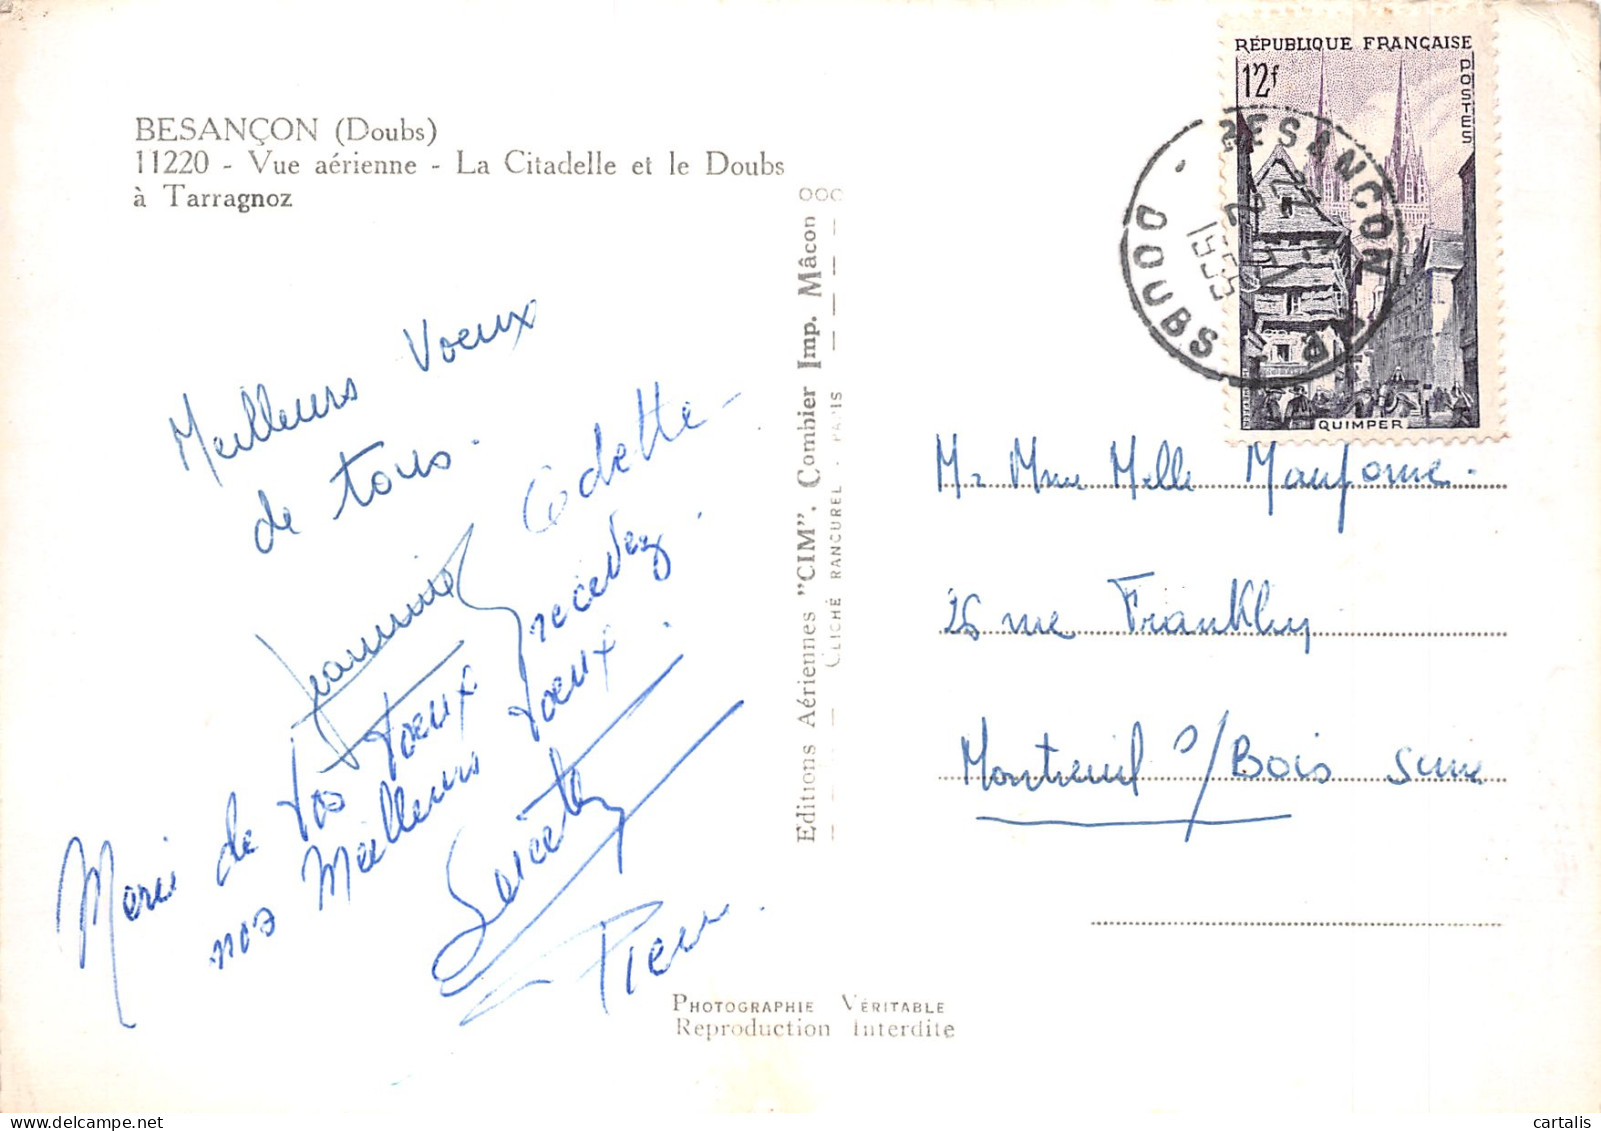 BESANÇON (Doubs)
11220 - Vue aérienne - La Citadelle et le Doubs
à Tarragnoz
Meilleurs Voeux
de tous.
Odette
Jeannine
Merci de vos voeux recevez
nos Meilleurs voeux.
Pierre.
Editions Aériennes "CIM", Combier Imp. Mâcon
CLICHÉ RANCUREL - PARIS
PHOTOGRAPHIE VÉRITABLE
Reproduction Interdite
RÉPUBLIQUE FRANÇAISE
12f
POSTES
QUIMPER
BESANCON R.P.
1955
DOUBS
Mr Mme Melle
rue Franklin
Montreuil s/Bois Seine
cartalis | delcampe.net